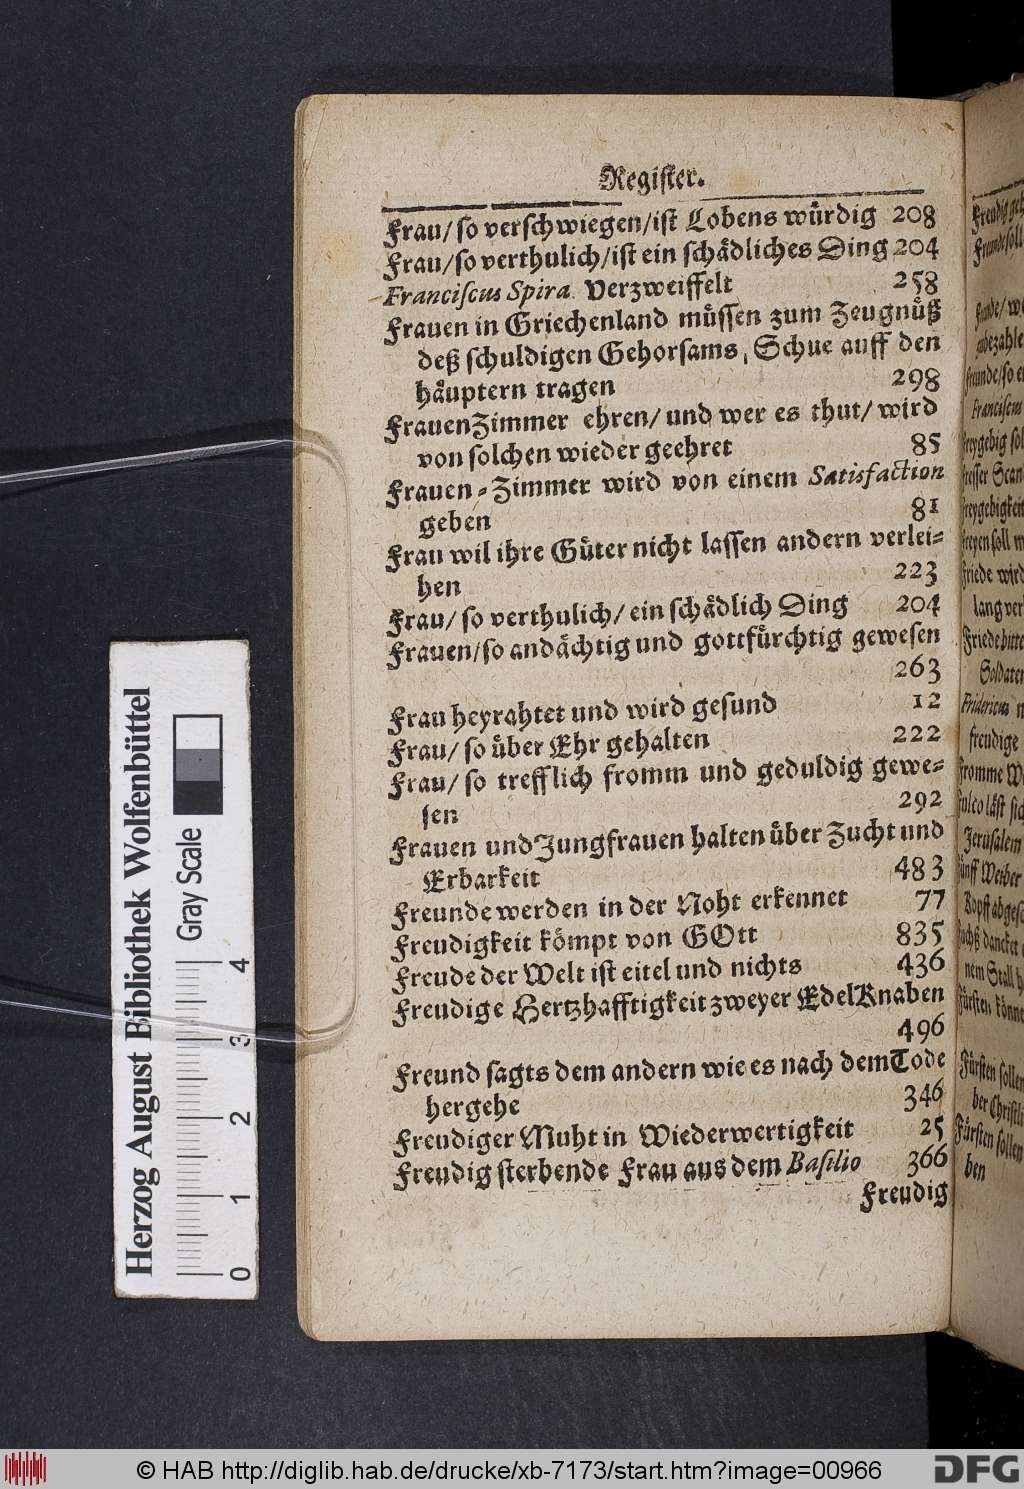 Register.
Frau/ so verschwiegen/ist Lobens würdig 208
Frau/so verthulich/ist ein schädliches Ding 204
Franciscus Spira verzweiffelt 258
Frauen in Griechenland müssen zum Zeugnüß
deß schuldigen Gehorsams, Schue auff den
häuptern tragen 298
FrauenZimmer ehren/ und wer es thut/ wird
von solchen wieder geehret 85
Frauen-Zimmer wird von einem Satisfaction
geben 81
Frau wil ihre Güter nicht lassen andern verlei-
hen 223
Frau/ so verthulich/ ein schädlich Ding 204
Frauen/so andächtig und gottfürchtig gewesen
263
Frau heyrahtet und wird gesund 12
Frau/ so über Ehr gehalten 222
Frau/ so trefflich fromm und geduldig gewe-
sen 292
Frauen und Jungfrauen halten über Zucht und
Erbarkeit 483
Freunde werden in der Noht erkennet 77
Freudigkeit kömpt von GOtt 835
Freude der Welt ist eitel und nichts 436
Freudige Hertzhafftigkeit zweyer EdelKnaben
496
Freund sagts dem andern wie es nach dem Tode
hergehe 346
Freudiger Muht in Wiederwertigkeit 25
Freudig sterbende Frau aus dem Basilio 366
Freudig
Herzog August Bibliothek Wolfenbüttel
Gray Scale
0 1 2 3 4
© HAB http://diglib.hab.de/drucke/xb-7173/start.htm?image=00966
DFG